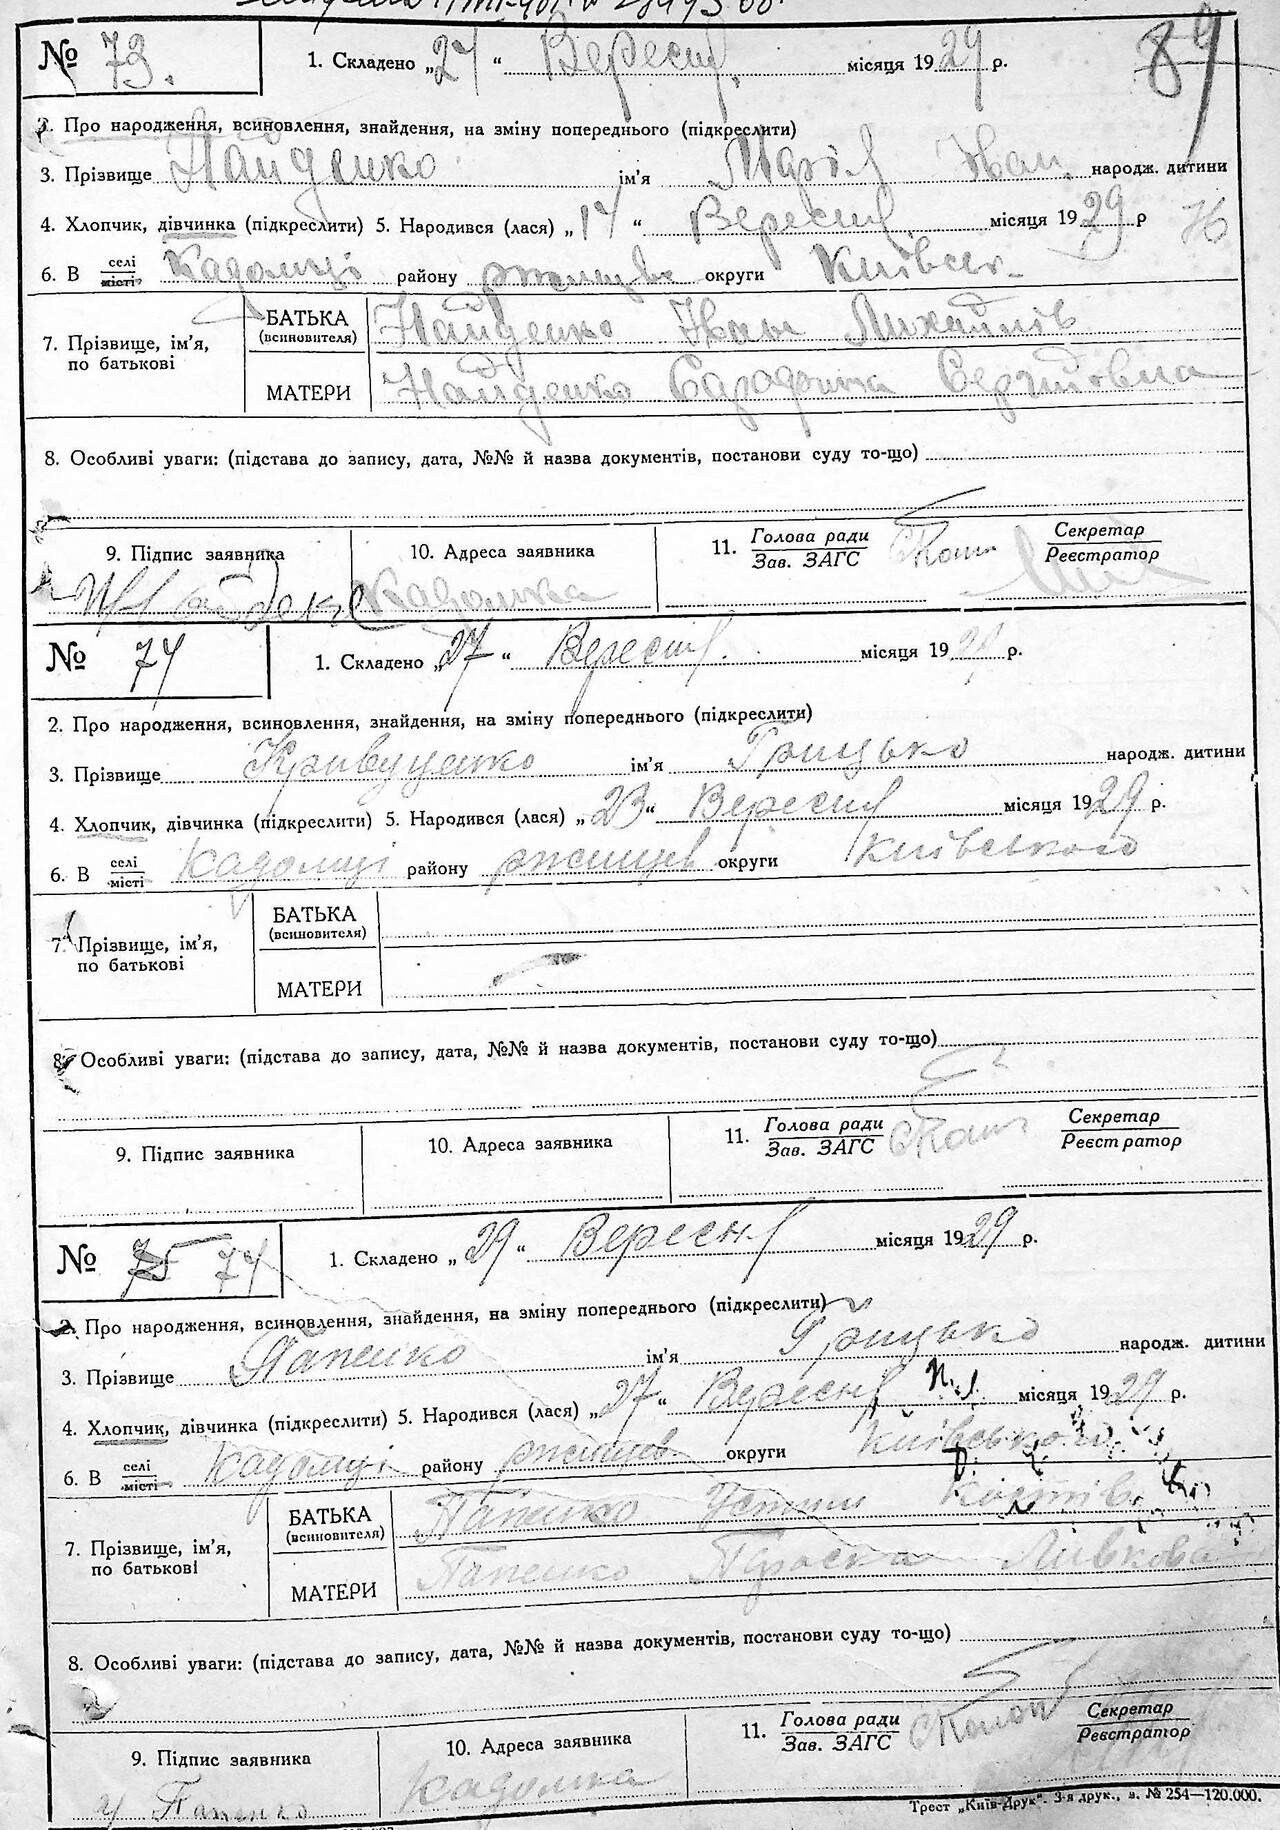 № 73. 1. Складено „27 “ Вересня. місяця 1929 р. 89
2. Про народження, всиновлення, знайдення, на зміну попереднього (підкреслити)
3. Прізвище Найденко ім'я Марія Іван. народж. дитини
4. Хлопчик, дівчинка (підкреслити) 5. Народився (лася) „17 “ Вересня місяця 1929 р Н
6. В селі місті Кадомці району ржищев округи Київськ.
7. Прізвище, ім'я, по батькові
БАТЬКА (всиновителя) Найденко Іван Михайлів
МАТЕРИ Найденко Сергіївна
8. Особливі уваги: (підстава до запису, дата, №№ й назва документів, постанови суду то-що)
9. Підпис заявника 10. Адреса заявника 11. Голова ради Зав. ЗАГС Секретар Реєстратор
Найденко Кадомка
№ 74 1. Складено „27 “ Вересня. місяця 1929 р.
2. Про народження, всиновлення, знайдення, на зміну попереднього (підкреслити)
3. Прізвище Кривуценко ім'я Грицько народж. дитини
4. Хлопчик, дівчинка (підкреслити) 5. Народився (лася) „23“ Вересня місяця 1929 р.
6. В селі місті Кадомці району ржищев округи Київського
7. Прізвище, ім'я, по батькові
БАТЬКА (всиновителя)
МАТЕРИ
8. Особливі уваги: (підстава до запису, дата, №№ й назва документів, постанови суду то-що)
9. Підпис заявника 10. Адреса заявника 11. Голова ради Зав. ЗАГС Секретар Реєстратор
№ 75 74 1. Складено „29 “ Вересня місяця 1929 р.
2. Про народження, всиновлення, знайдення, на зміну попереднього (підкреслити)
3. Прізвище Папенко ім'я Грицько народж. дитини
4. Хлопчик, дівчинка (підкреслити) 5. Народився (лася) „27 “ Вересня місяця 1929 р.
6. В селі місті Кадомці району ржищев округи Київського
7. Прізвище, ім'я, по батькові
БАТЬКА (всиновителя) Папенко Устим Костів
МАТЕРИ Папенко Параска Ливкова
8. Особливі уваги: (підстава до запису, дата, №№ й назва документів, постанови суду то-що)
9. Підпис заявника 10. Адреса заявника 11. Голова ради Зав. ЗАГС Секретар Реєстратор
у Папенко Кадомка
Трест „Київ-Друк“. 3-я друк., з. № 254—120.000.